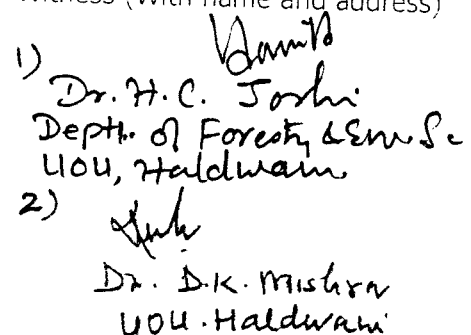 Witness (With name and address)
1)
Dr. H. C. Joshi
Deptt. of Forestry & Env Sc
UOU, Haldwani
2)
Dr. D.K. Mishra
UOU. Haldwani